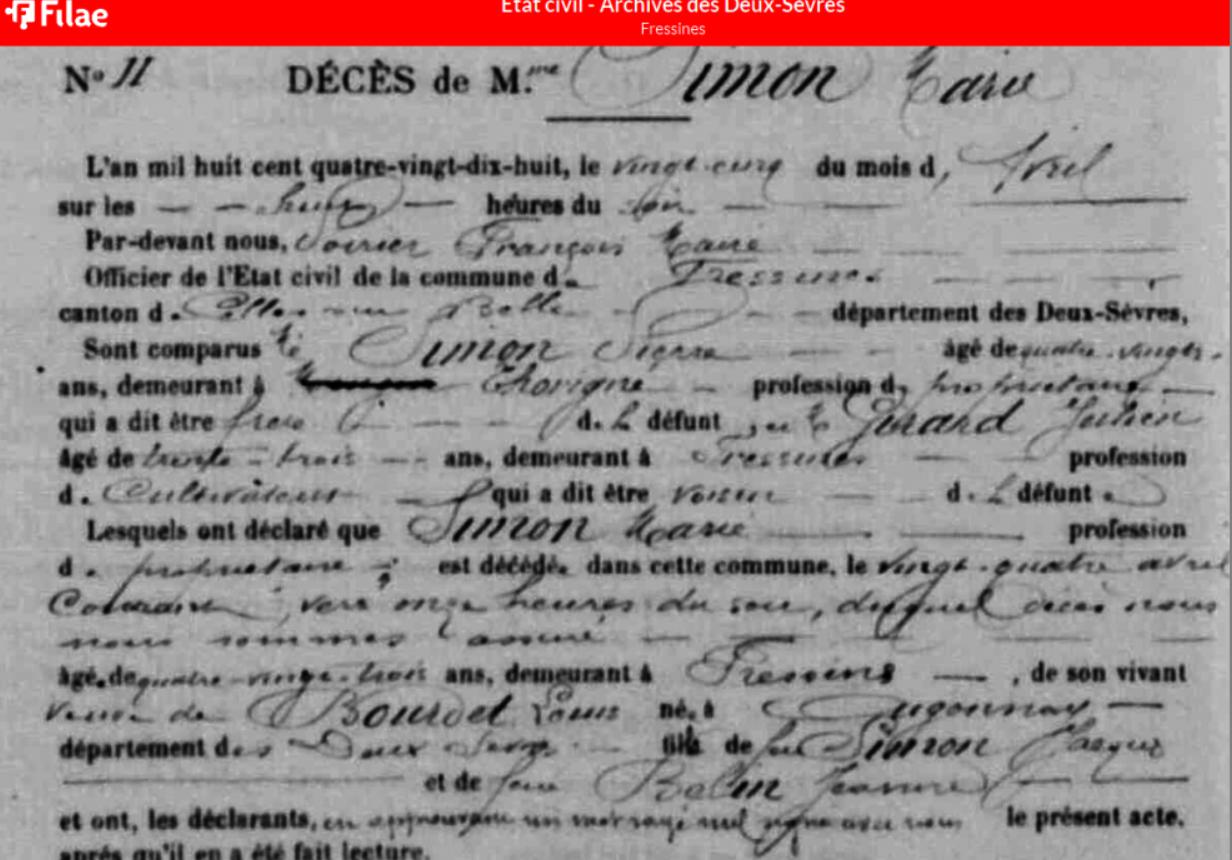 Filae
État civil - Archives des Deux-Sèvres
Fressines
N° 11 DÉCÈS de M.me Simon Marie
L'an mil huit cent quatre-vingt-dix-huit, le vingt-cinq du mois d, Avril
sur les heures du soir
Par-devant nous, François Maire
Officier de l'Etat civil de la commune d. Fressines
canton d. Celles sur Belle département des Deux-Sèvres,
Sont comparus Simon Pierre âgé de quatre-vingts
ans, demeurant à Thorigné profession d. propriétaire
qui a dit être frère d. la défunt, Girard Julien
âgé de trente-trois ans, demeurant à Fressines profession
d. Cultivateur qui a dit être voisin d. la défunte
Lesquels ont déclaré que Simon Marie profession
d. propriétaire est décédée dans cette commune, le vingt-quatre avril
Courant, vers onze heures du soir, duquel décès nous
nous sommes assuré
âgée de quatre-vingt-trois ans, demeurant à Fressines, de son vivant
Veuve de Bourdet Louis née à
département des Deux Sèvres fille de feu Simon Jacques
et de feue Jeanne
et ont, les déclarants, en approuvant un mot rayé nul signé avec nous le présent acte,
après qu'il en a été fait lecture.